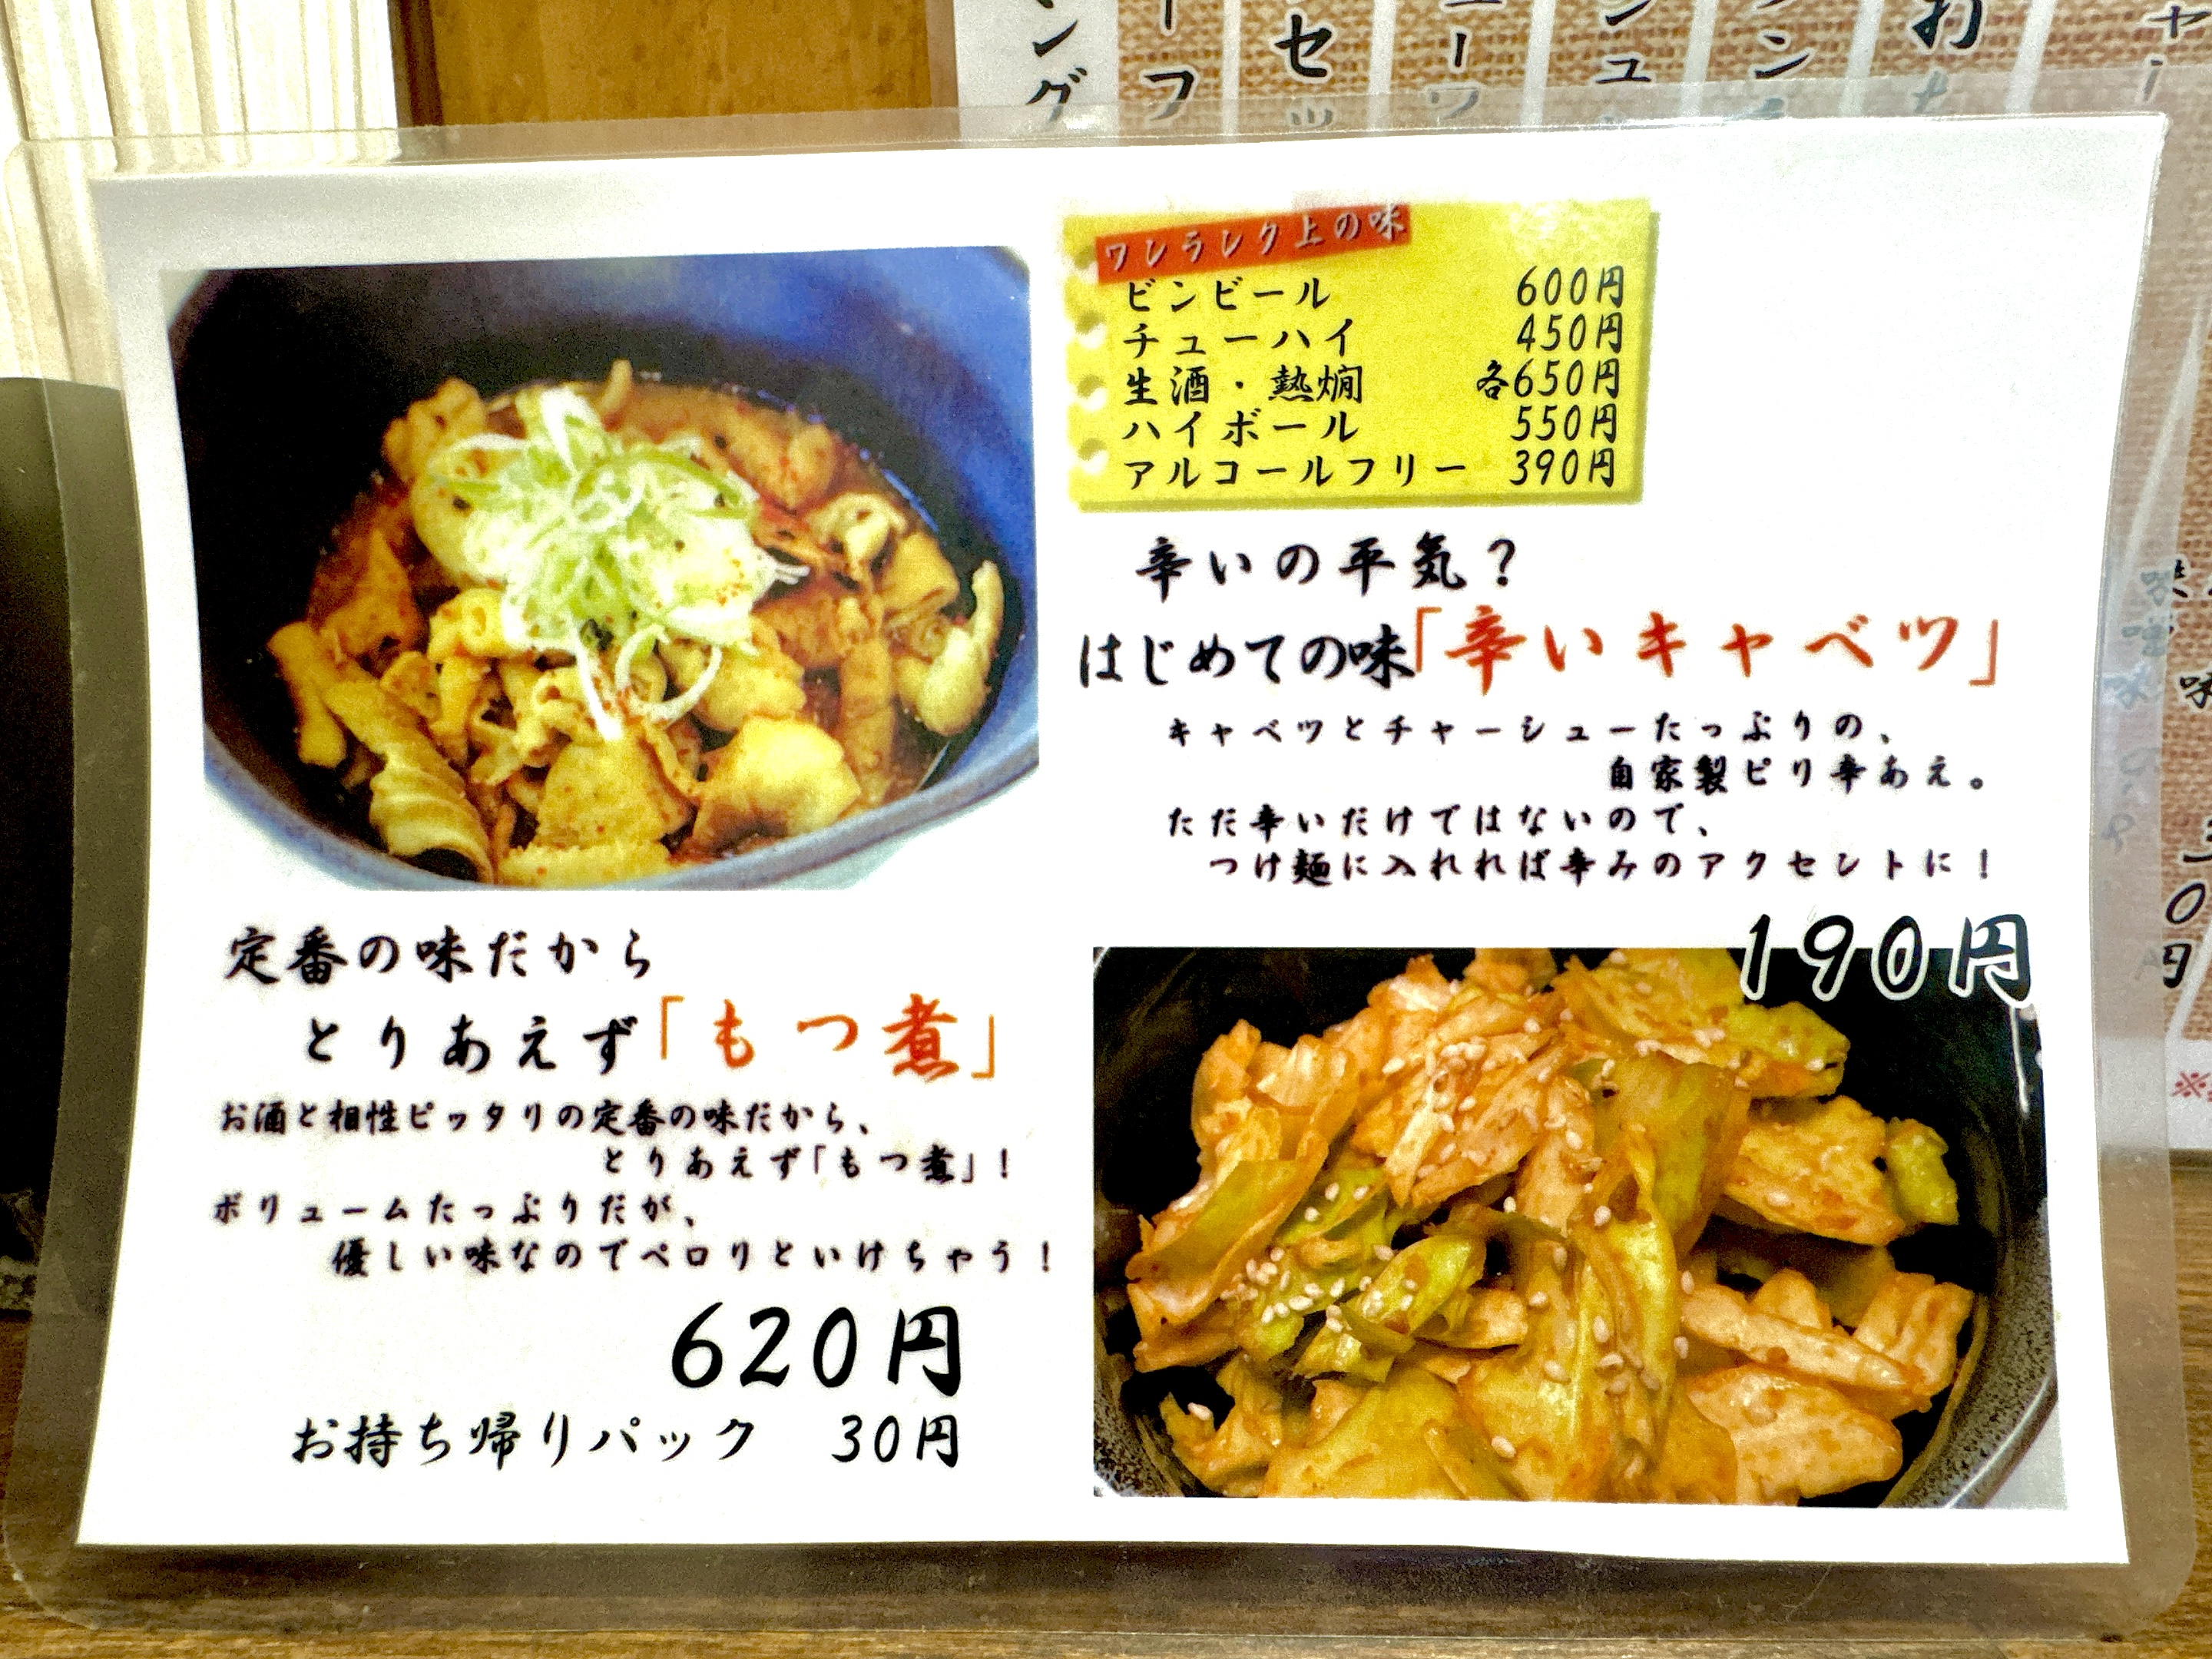 ワンランク上の味
ビンビール 600円
チューハイ 450円
生酒・熱燗 各650円
ハイボール 550円
アルコールフリー 390円
辛いの平気？
はじめての味「辛いキャベツ」
キャベツとチャーシューたっぷりの、
自家製ピリ辛あえ。
ただ辛いだけではないので、
つけ麺に入れれば辛みのアクセントに！
190円
定番の味だから
とりあえず「もつ煮」
お酒と相性ピッタリの定番の味だから、
とりあえず「もつ煮」！
ボリュームたっぷりだが、
優しい味なのでペロリといけちゃう！
620円
お持ち帰りパック 30円